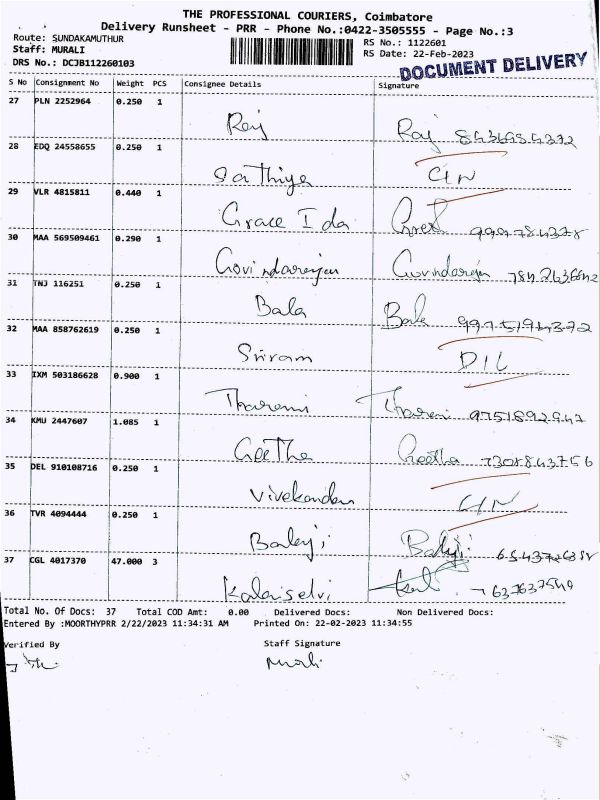 THE PROFESSIONAL COURIERS, Coimbatore
Delivery Runsheet - PRR - Phone No.:0422-3505555 - Page No.:3
Route: SUNDAKAMUTHUR
RS No.: 1122601
Staff: MURALI
RS Date: 22-Feb-2023
DRS No.: DCJB112260103
DOCUMENT DELIVERY
S No Consignment No Weight PCS Consignee Details Signature
27 PLN 2252964 0.250 1
Raj Raj
28 EDQ 24558655 0.250 1
Sathiya
29 VLR 4815811 0.440 1
Grace Ida
30 MAA 569509461 0.290 1
Govindarajan
31 TNJ 116251 0.250 1
Bala Bala
32 MAA 858762619 0.250 1
Sriram D/L
33 IXM 503186628 0.900 1
Tharani Tharani 9751892947
34 KMU 2447607 1.085 1
Geetha Geetha 7308843756
35 DEL 910108716 0.250 1
Vivekandan
36 TVR 4094444 0.250 1
Balaji Balaji
37 CGL 4017370 47.000 3
Kalaiselvi
Total No. Of Docs: 37 Total COD Amt: 0.00 Delivered Docs: Non Delivered Docs:
Entered By :MOORTHYPRR 2/22/2023 11:34:31 AM Printed On: 22-02-2023 11:34:55
Verified By Staff Signature
Murali